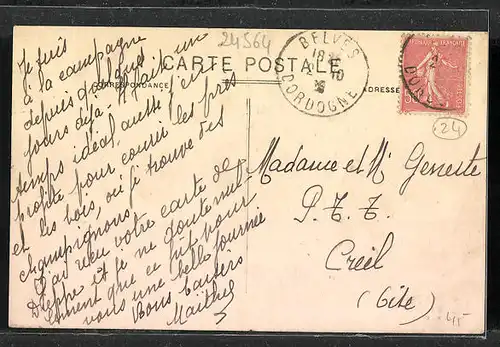 24564
CARTE POSTALE
CORRESPONDANCE
ADRESSE
BELVÈS
DORDOGNE
Je suis
à la campagne
depuis quelques
jours déjà. Il fait un
temps idéal, aussi j'en
profite pour courir les prés
et les bois, où je trouve des
champignons.
J'ai reçu votre carte de
Dieppe et je ne doute nul-
lement que ce fut pour
vous une belle journée
Bons baisers
Madame et Mr Geneste
P.T.T.
Creil
(Oise)
24
45